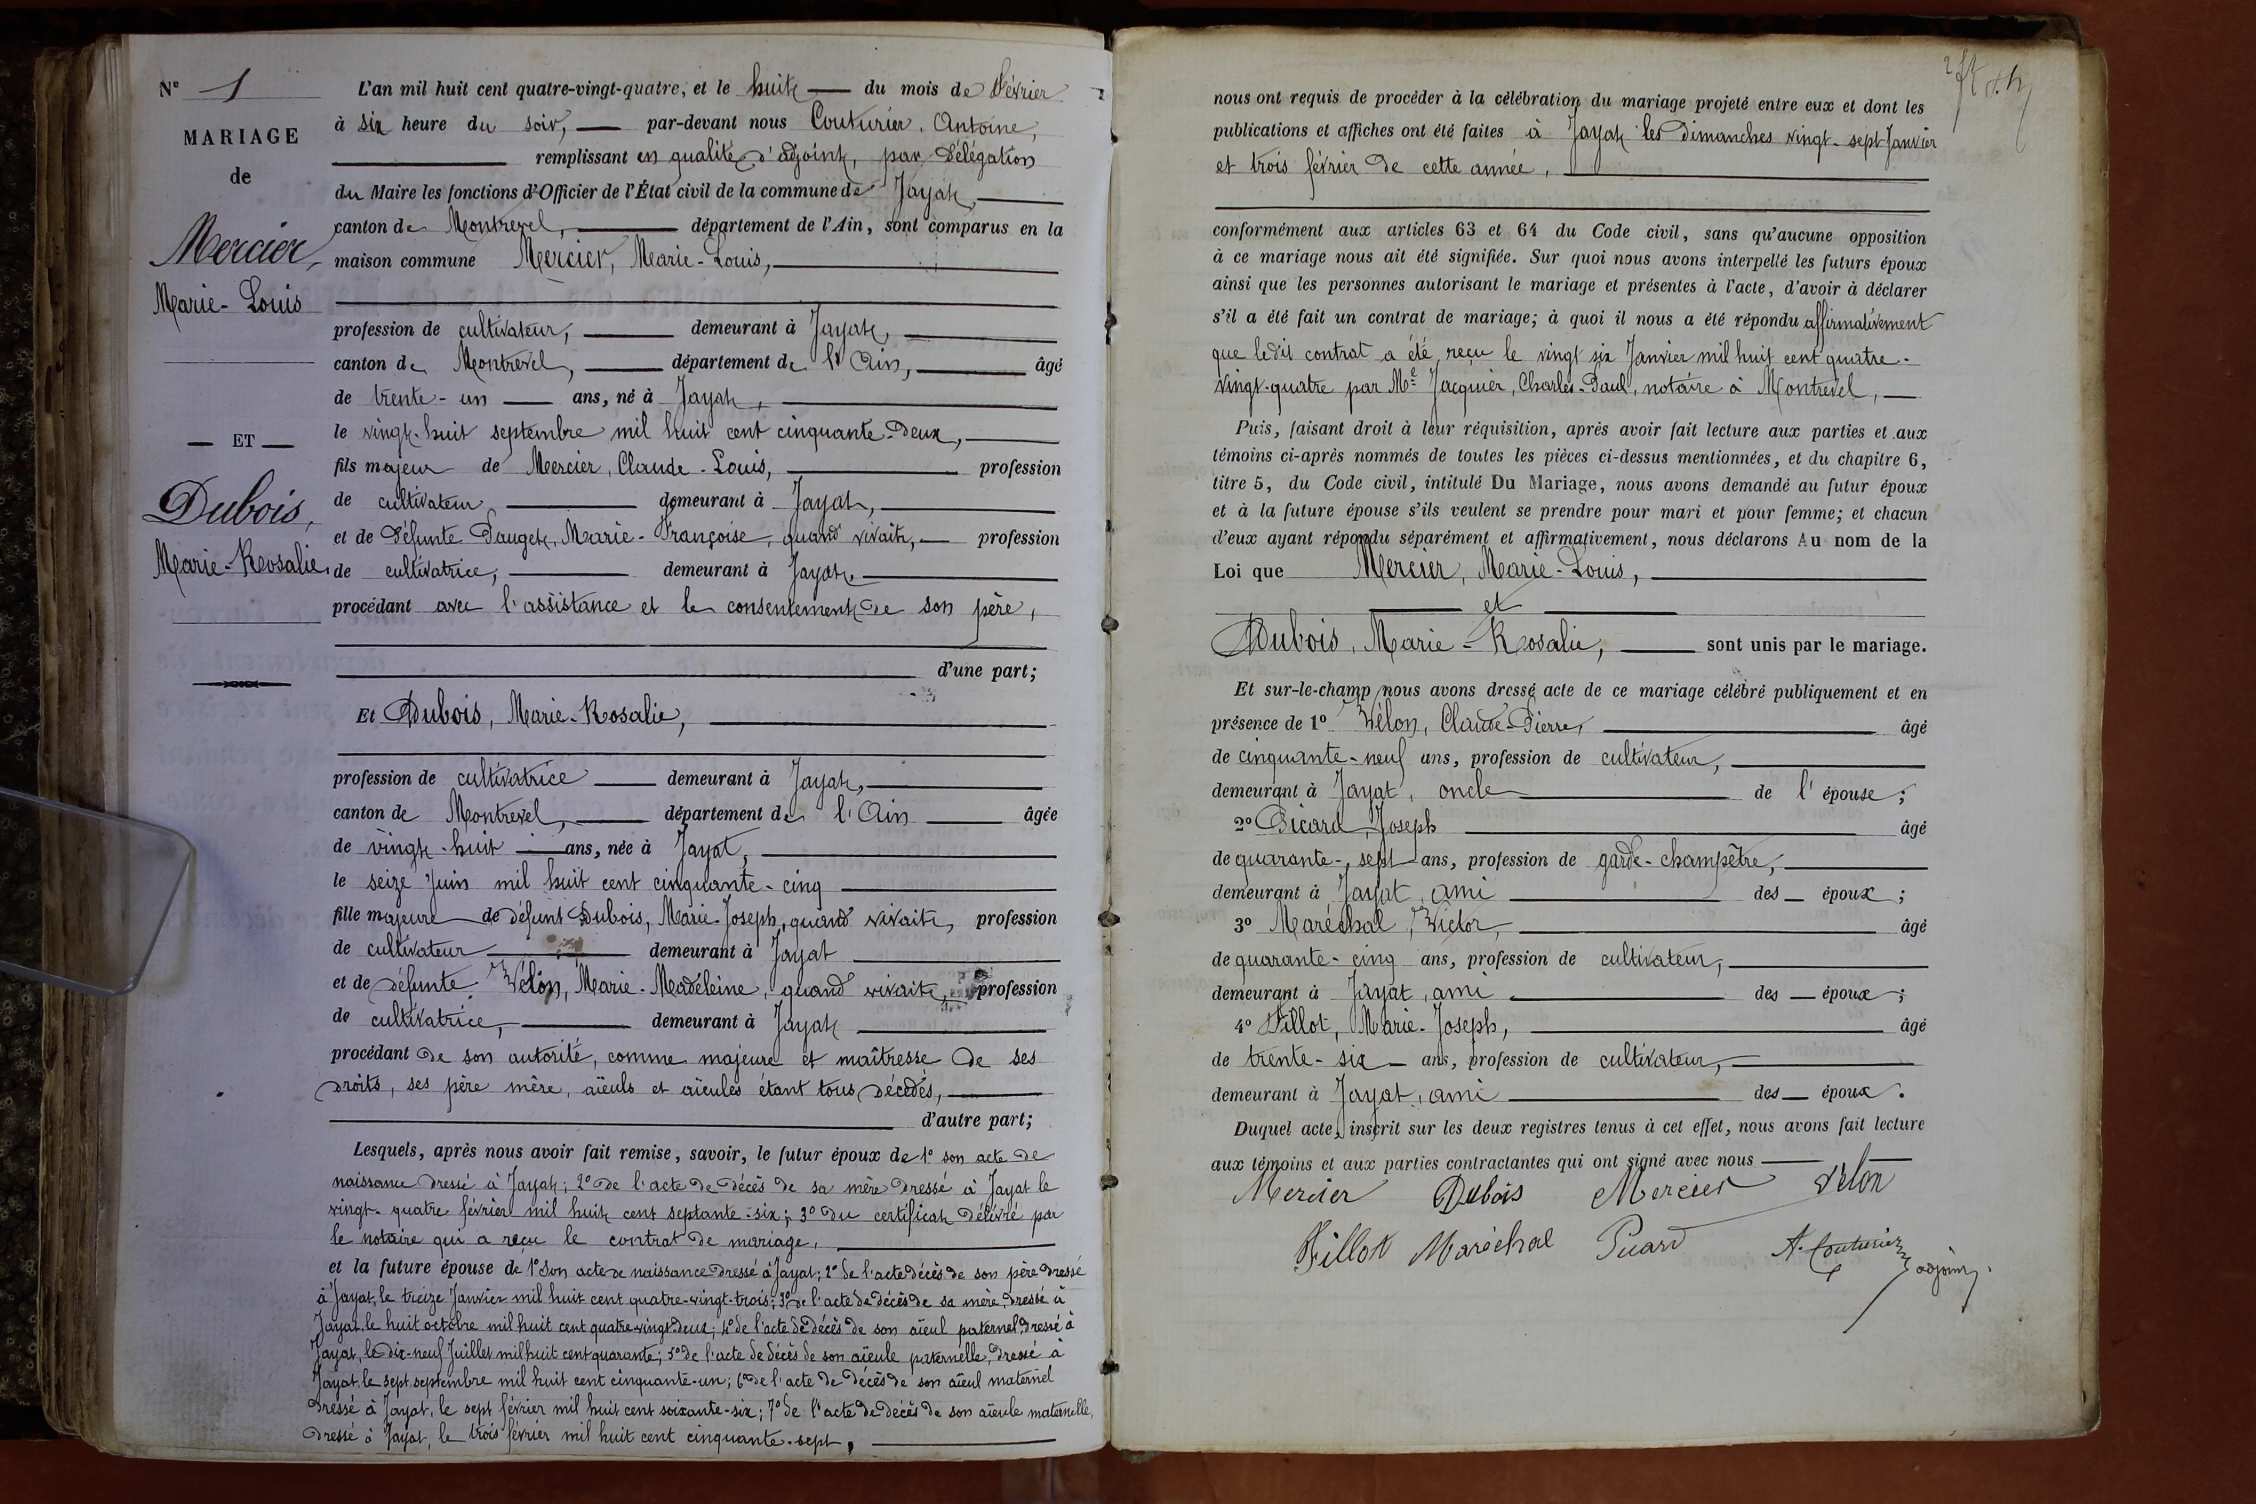 N° 1
MARIAGE
de
Mercier,
Marie-Louis
ET
Dubois,
Marie-Rosalie
L'an mil huit cent quatre-vingt-quatre, et le huit du mois de Février
à six heure du soir, par-devant nous Couturier, Antoine,
remplissant en qualité d'adjoint, par délégation
du Maire les fonctions d'Officier de l'État civil de la commune de Jayat,
canton de Montrevel, département de l'Ain, sont comparus en la
maison commune Mercier, Marie-Louis,
profession de cultivateur, demeurant à Jayat,
canton de Montrevel, département de l'Ain, âgé
de trente-un ans, né à Jayat,
le vingt-huit septembre mil huit cent cinquante-deux,
fils majeur de Mercier, Claude-Louis, profession
de cultivateur demeurant à Jayat,
et de défunte Pauget, Marie-Françoise, quand vivait, profession
de cultivatrice, demeurant à Jayat,
procédant avec l'assistance et le consentement de son père,
d'une part;
Et Dubois, Marie-Rosalie,
profession de cultivatrice demeurant à Jayat,
canton de Montrevel, département de l'Ain âgée
de vingt-huit ans, née à Jayat,
le seize Juin mil huit cent cinquante-cinq
fille majeure de défunt Dubois, Marie-Joseph, quand vivait, profession
de cultivateur demeurant à Jayat
et de défunte Vélon, Marie-Madeleine, quand vivait, profession
de cultivatrice, demeurant à Jayat
procédant de son autorité, comme majeure et maîtresse de ses
droits, ses père mère, aïeuls et aïeules étant tous décédés,
d'autre part;
Lesquels, après nous avoir fait remise, savoir, le futur époux de 1° son acte de
naissance dressé à Jayat; 2° de l'acte de décès de sa mère dressé à Jayat le
vingt-quatre février mil huit cent septante-six; 3° du certificat délivré par
le notaire qui a reçu le contrat de mariage,
et la future épouse de 1° son acte de naissance dressé à Jayat; 2° de l'acte décès de son père dressé
à Jayat, le treize Janvier mil huit cent quatre-vingt-trois; 3° de l'acte de décès de sa mère, dressé à
Jayat, le huit octobre mil huit cent quatre-vingt-deux; 4° de l'acte de décès de son aïeul paternel, dressé à
Jayat, le dix-neuf Juillet mil huit cent quarante; 5° de l'acte de décès de son aïeule paternelle, dressé à
Jayat, le sept septembre mil huit cent cinquante-un; 6° de l'acte de décès de son aïeul maternel
dressé à Jayat, le sept février mil huit cent soixante-six; 7° de l'acte de décès de son aïeule maternelle,
dressé à Jayat, le trois février mil huit cent cinquante-sept,
nous ont requis de procéder à la célébration du mariage projeté entre eux et dont les
publications et affiches ont été faites à Jayat les dimanches vingt-sept Janvier
et trois février de cette année,
conformément aux articles 63 et 64 du Code civil, sans qu'aucune opposition
à ce mariage nous ait été signifiée. Sur quoi nous avons interpellé les futurs époux
ainsi que les personnes autorisant le mariage et présentes à l'acte, d'avoir à déclarer
s'il a été fait un contrat de mariage; à quoi il nous a été répondu affirmativement
que ledit contrat a été reçu le vingt six Janvier mil huit cent quatre-
vingt-quatre par Me Jacquier, Charles-Paul, notaire à Montrevel,
Puis, faisant droit à leur réquisition, après avoir fait lecture aux parties et aux
témoins ci-après nommés de toutes les pièces ci-dessus mentionnées, et du chapitre 6,
titre 5, du Code civil, intitulé Du Mariage, nous avons demandé au futur époux
et à la future épouse s'ils veulent se prendre pour mari et pour femme; et chacun
d'eux ayant répondu séparément et affirmativement, nous déclarons Au nom de la
Loi que Mercier, Marie-Louis,
et
Dubois, Marie-Rosalie, sont unis par le mariage.
Et sur-le-champ nous avons dressé acte de ce mariage célébré publiquement et en
présence de 1° Vélon, Claude-Pierre, âgé
de cinquante-neuf ans, profession de cultivateur,
demeurant à Jayat, oncle de l'épouse;
2° Picard, Joseph âgé
de quarante-sept ans, profession de garde-champêtre,
demeurant à Jayat, ami des époux;
3° Maréchal, Victor, âgé
de quarante-cinq ans, profession de cultivateur,
demeurant à Jayat, ami des époux;
4° Fillot, Marie-Joseph, âgé
de trente-six ans, profession de cultivateur,
demeurant à Jayat, ami des époux.
Duquel acte, inscrit sur les deux registres tenus à cet effet, nous avons fait lecture
aux témoins et aux parties contractantes qui ont signé avec nous
Mercier Dubois Mercier Velon
Fillot Maréchal Picard A. Couturier adjoint.